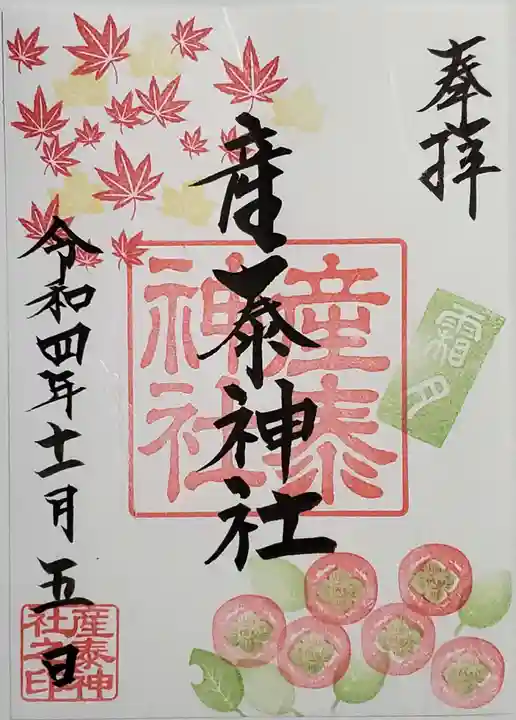 奉拝
霜月
産泰神社
産泰神社
令和四年十一月五日
産泰神社之印